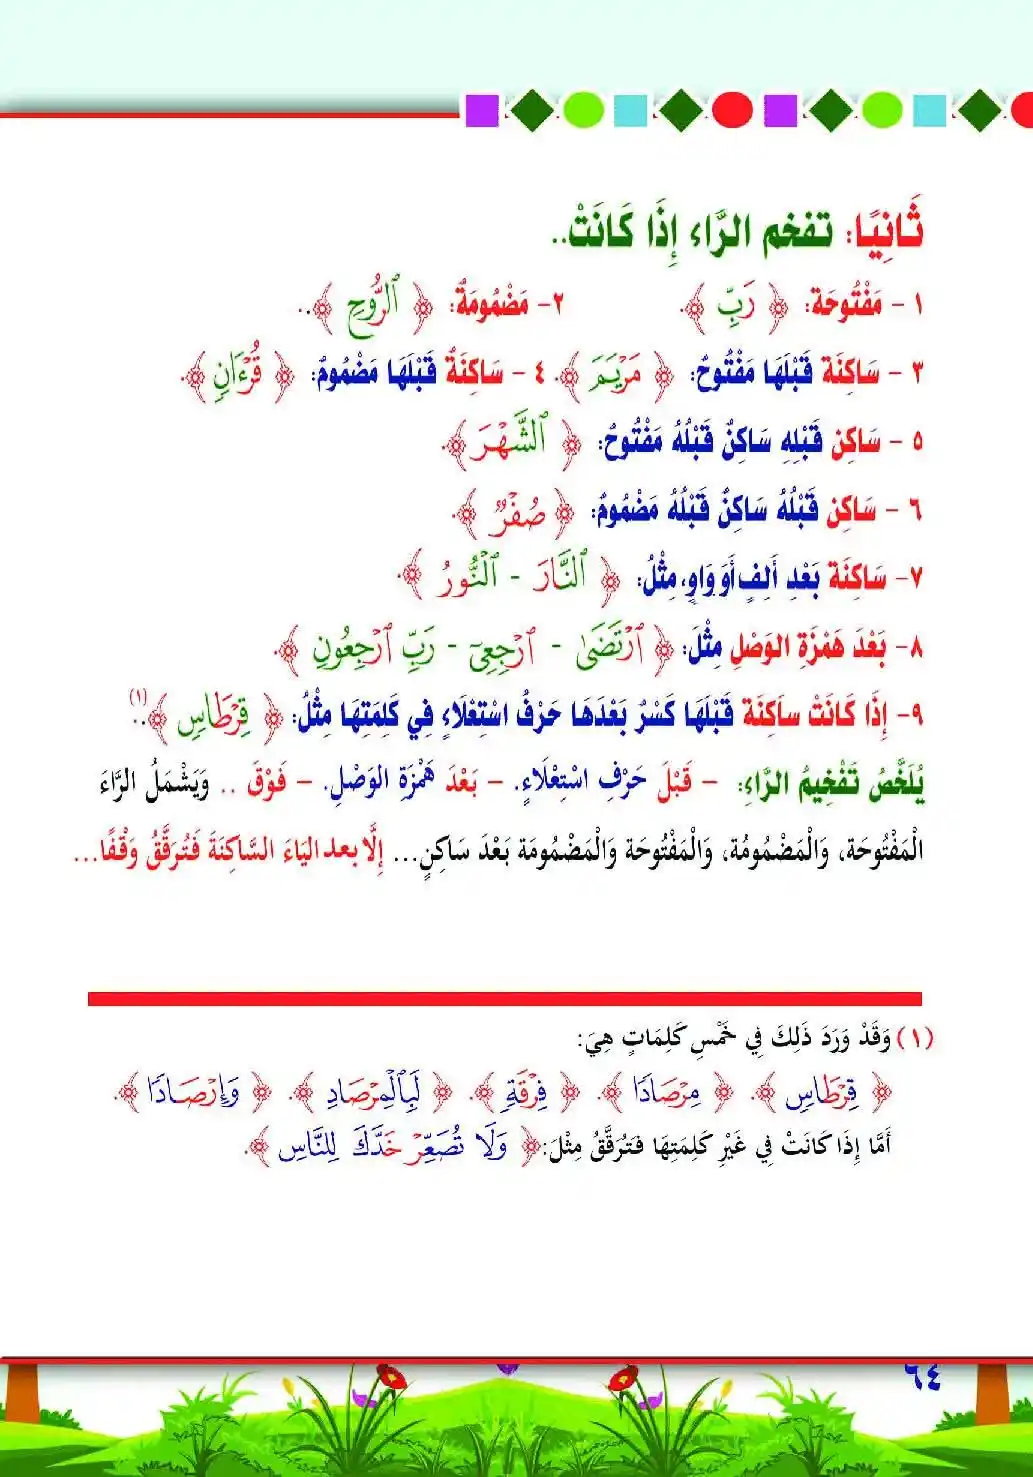 ثَانِيًا: تفخم الرَّاء إِذَا كَانَتْ..
١ - مَفْتُوحَة: ﴿ رَبِّ ﴾. ٢- مَضْمُومَةٌ: ﴿ ٱلرُّوحِ ﴾..
٣ - سَاكِنَة قَبْلَهَا مَفْتُوحٌ: ﴿ مَرْيَمَ ﴾. ٤ - سَاكِنَةٌ قَبْلَهَا مَضْمُومٌ: ﴿ قُرْءَانٍ ﴾.
٥ - سَاكِن قَبْلِهِ سَاكِنٌ قَبْلُهُ مَفْتُوحٌ: ﴿ ٱلشَّهْرَ ﴾.
٦ - سَاكِن قَبْلُهُ سَاكِنٌ قَبْلُهُ مَضْمُومٌ: ﴿ صُفْرٌ ﴾.
٧- سَاكِنَة بَعْدِ أَلِفٍ أَوَ وَاوٍ، مِثْلُ: ﴿ ٱلنَّارَ - ٱلنُّورُ ﴾.
٨- بَعْدَ هَمْزَةِ الوَصْلِ مِثْلَ: ﴿ ٱرْتَضَىٰ - ٱرْجِعِىٓ - رَبِّ ٱرْجِعُونِ ﴾.
٩- إِذَا كَانَتْ ساَكِنَة قَبْلَهَا كَسْرٌ بَعْدَهَا حَرْفُ اسْتِعْلَاءٍ فِي كَلِمَتِهَا مِثْلُ: ﴿ قِرْطَاسٍ ﴾..(١)
يُلَخَّصُ تَفْخِيمُ الرَّاءِ: - قَبْلَ حَرْفِ اسْتِعْلَاءٍ. - بَعْدَ هَمْزَةِ الوَصْلِ. - فَوْقَ .. وَيَشْمَلُ الرَّاءَ
الْمَفْتُوحَة، وَالْمَضْمُومُة، وَالْمَفْتُوحَة وَالْمَضْمُومَة بَعْدَ سَاكِنٍ... إِلَّا بعد اليَاءَ السَّاكِنَةَ فَتُرَقَّقُ وَقْفًا...
(١) وَقَدْ وَرَدَ ذَلِكَ فِي خَمْسِ كَلِمَاتٍ هِيَ:
﴿ قِرْطَاسٍ ﴾. ﴿ مِرْصَادًا ﴾. ﴿ فِرْقَةٍ ﴾. ﴿ لَبِٱلْمِرْصَادِ ﴾. ﴿ وَإِرْصَادًا ﴾.
أَمَّا إِذَا كَانَتْ فِي غَيْرِ كَلِمَتِهَا فَتُرَقَّقُ مِثْلَ: ﴿ وَلَا تُصَعِّرْ خَدَّكَ لِلنَّاسِ ﴾.
٦٤